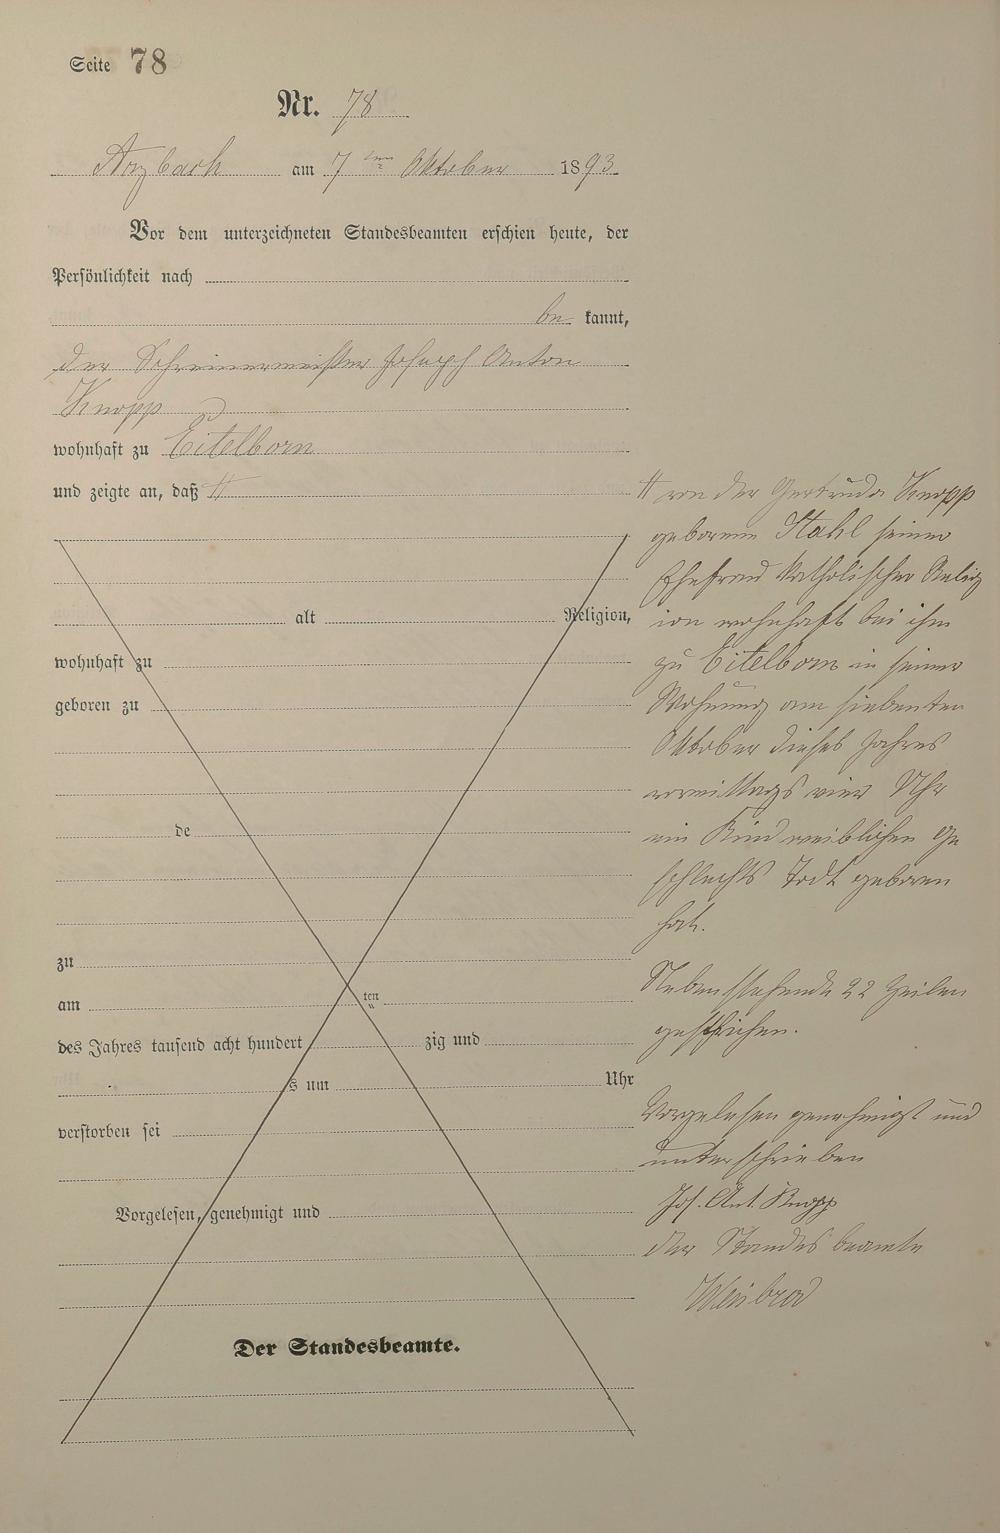 Seite 78
Nr. 78
Arzbach am 7ten Oktober 1893.
Vor dem unterzeichneten Standesbeamten erschien heute, der
Persönlichkeit nach
be kannt,
der Schreinermeister Joseph Anton
Knopp
wohnhaft zu Eitelborn
und zeigte an, daß #
# von der Gertruda Knopp
geborene Stahl seiner
Ehefrau katholischer Relig
ion wohnhaft bei ihm
zu Eitelborn in seiner
Wohnung am siebenten
Oktober dieses Jahres
vormittags vier Uhr
ein Kind weiblichen Ge
schlechts Todt geboren
hat.
Nebenstehende 22 Zeilen
gestrichen.
Vorgelesen genehmigt und
unterschrieben
Jos. Ant. Knopp
der Standesbeamte
Weisbrod
alt Religion,
wohnhaft zu
geboren zu
de
zu
am ten
des Jahres tausend acht hundert zig und
s um Uhr
verstorben sei
Vorgelesen, genehmigt und
Der Standesbeamte.